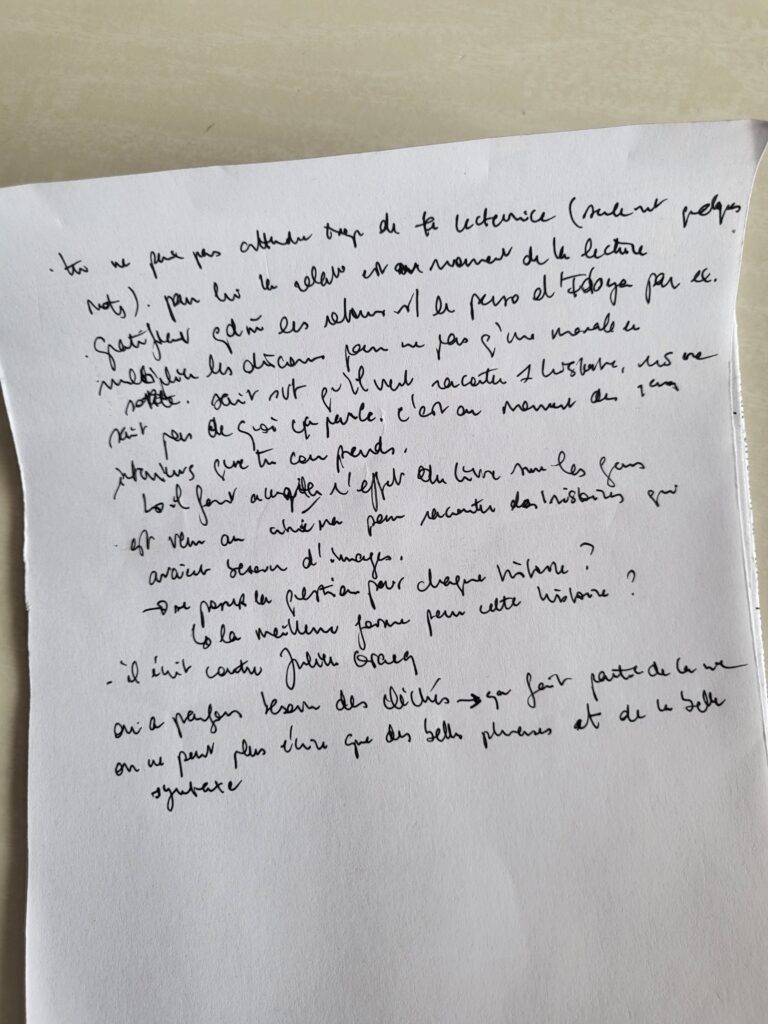 . tu ne peux pas attendre trop de ta lectrice (seulemt quelques
mots). pour lui la relat° est au moment de la lecture
. gratifiant qd les retours st le perso d'Idoya par ex.
multiplier les discours pour ne pas q'une morale en
sorte. sait sut qu'il veut raconter 1 histoire, ne
sait pas de quoi ça parle. c'est au moment des
interviews que tu comprends.
↳ il faut accepter l'effet du livre sur les gens
. est venu au cinéma pour raconter des histoires qui
avaient besoin d'images.
→ se poser la question pour chaque histoire ?
↳ la meilleure forme pour cette histoire ?
- il écrit contre Julien Gracq
on a parfois besoin des clichés → ça fait partie de la vie
on ne peut plus écrire que des belles phrases et de la belle
syntaxe